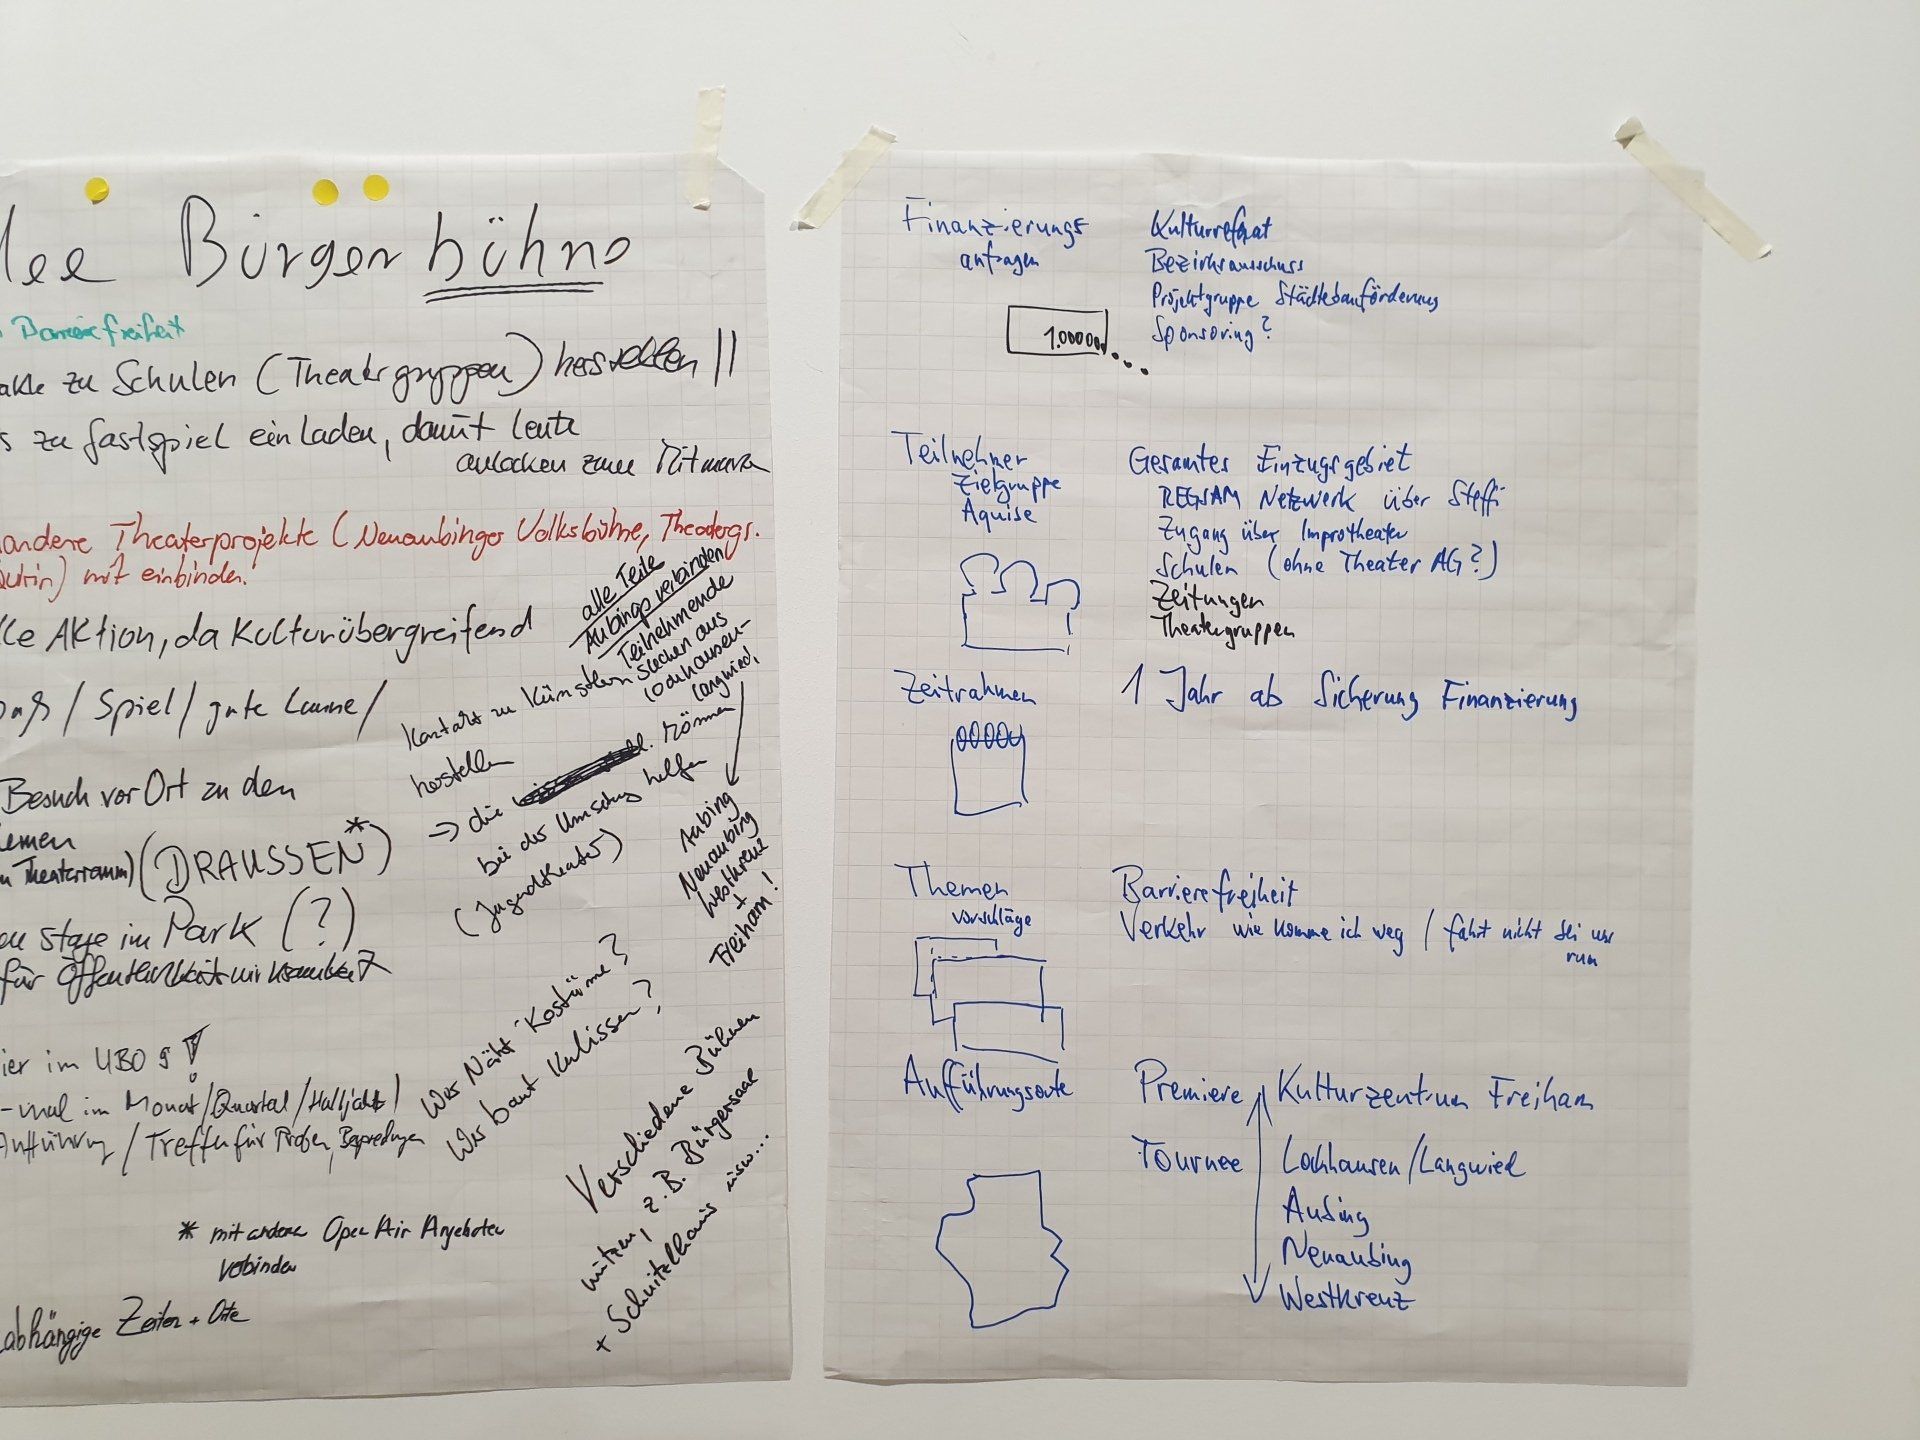 Bürgerbühne
Barrierefreiheit
zu Schulen (Theatergruppen) herstellen !!
zu Gastspiel einladen, damit Leute
anlocken zum Mitmachen
andere Theaterprojekte (Neuaubinger Volksbühne, Theatergr.
mit einbinden.
alle Teile
Aubings verbinden
Teilnehmende
suchen aus
Lochhausen-
Langwied,
Aubing
Neuaubing
Westkreuz
+
Freiham!
Aktion, da Kulturübergreifend
/ Spiel / gute Laune /
Kontakt zu Künstlern
herstellen
=> die können
bei der Umsetzung helfen
(Jugendtheater)
Besuch vor Ort zu den
Theaterraum) (DRAUSSEN*)
stage im Park (?)
für Öffentlichkeitswirksamkeit
im UBO 9 !
-mal im Monat/Quartal/Halbjahr/
Aufführung / Treffen für Proben, Besprechungen
Wer Näht Kostüme?
Wer baut Kulissen?
Verschiedene Bühnen
nutzen, z.B. Bürgersaal
+ Schnitzelhaus usw...
* mit anderen Open Air Angeboten
verbinden
abhängige Zeiten + Orte
Finanzierungs
anfragen
Kulturreferat
Bezirksausschuss
Projektgruppe Städtebauförderung
Sponsoring?
Teilnehmer
Zielgruppe
Aquise
Gesamtes Einzugsgebiet
REGSAM Netzwerk über Steffi
Zugang über Improtheater
Schulen (ohne Theater AG?)
Zeitungen
Theatergruppen
Zeitrahmen
1 Jahr ab Sicherung Finanzierung
Themen
vorschläge
Barrierefreiheit
Verkehr wie komme ich weg / fahrt nicht bei uns
rum
Aufführungsorte
Premiere Kulturzentrum Freiham
Tournee Lochhausen/Langwied
Aubing
Neuaubing
Westkreuz